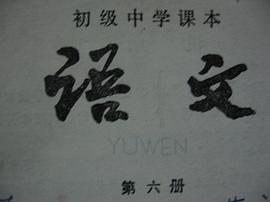 初级中学课本
语文
YUWEN
第六册